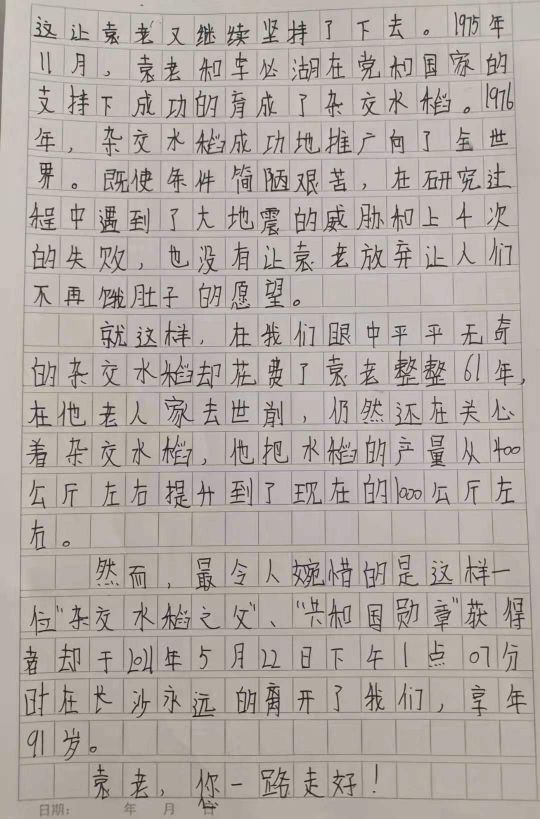 这让袁老又继续坚持了下去。1975年
11月，袁老和李必湖在党和国家的
支持下成功的育成了杂交水稻。1976
年，杂交水稻成功地推广向了全世
界。既使条件简陋艰苦，在研究过
程中遇到了大地震的威胁和上千次
的失败，也没有让袁老放弃让人们
不再饿肚子的愿望。
就这样，在我们眼中平平无奇
的杂交水稻却花费了袁老整整61年，
在他老人家去世前，仍然还在关心
着杂交水稻，他把水稻的产量从400
公斤左右提升到了现在的1000公斤左
右。
然而，最令人婉惜的是这样一
位"杂交水稻之父"、"共和国勋章"获得
者却于2021年5月22日下午1点07分
时在长沙永远的离开了我们，享年
91岁。
袁老，您一路走好！
日期： 年 月 日